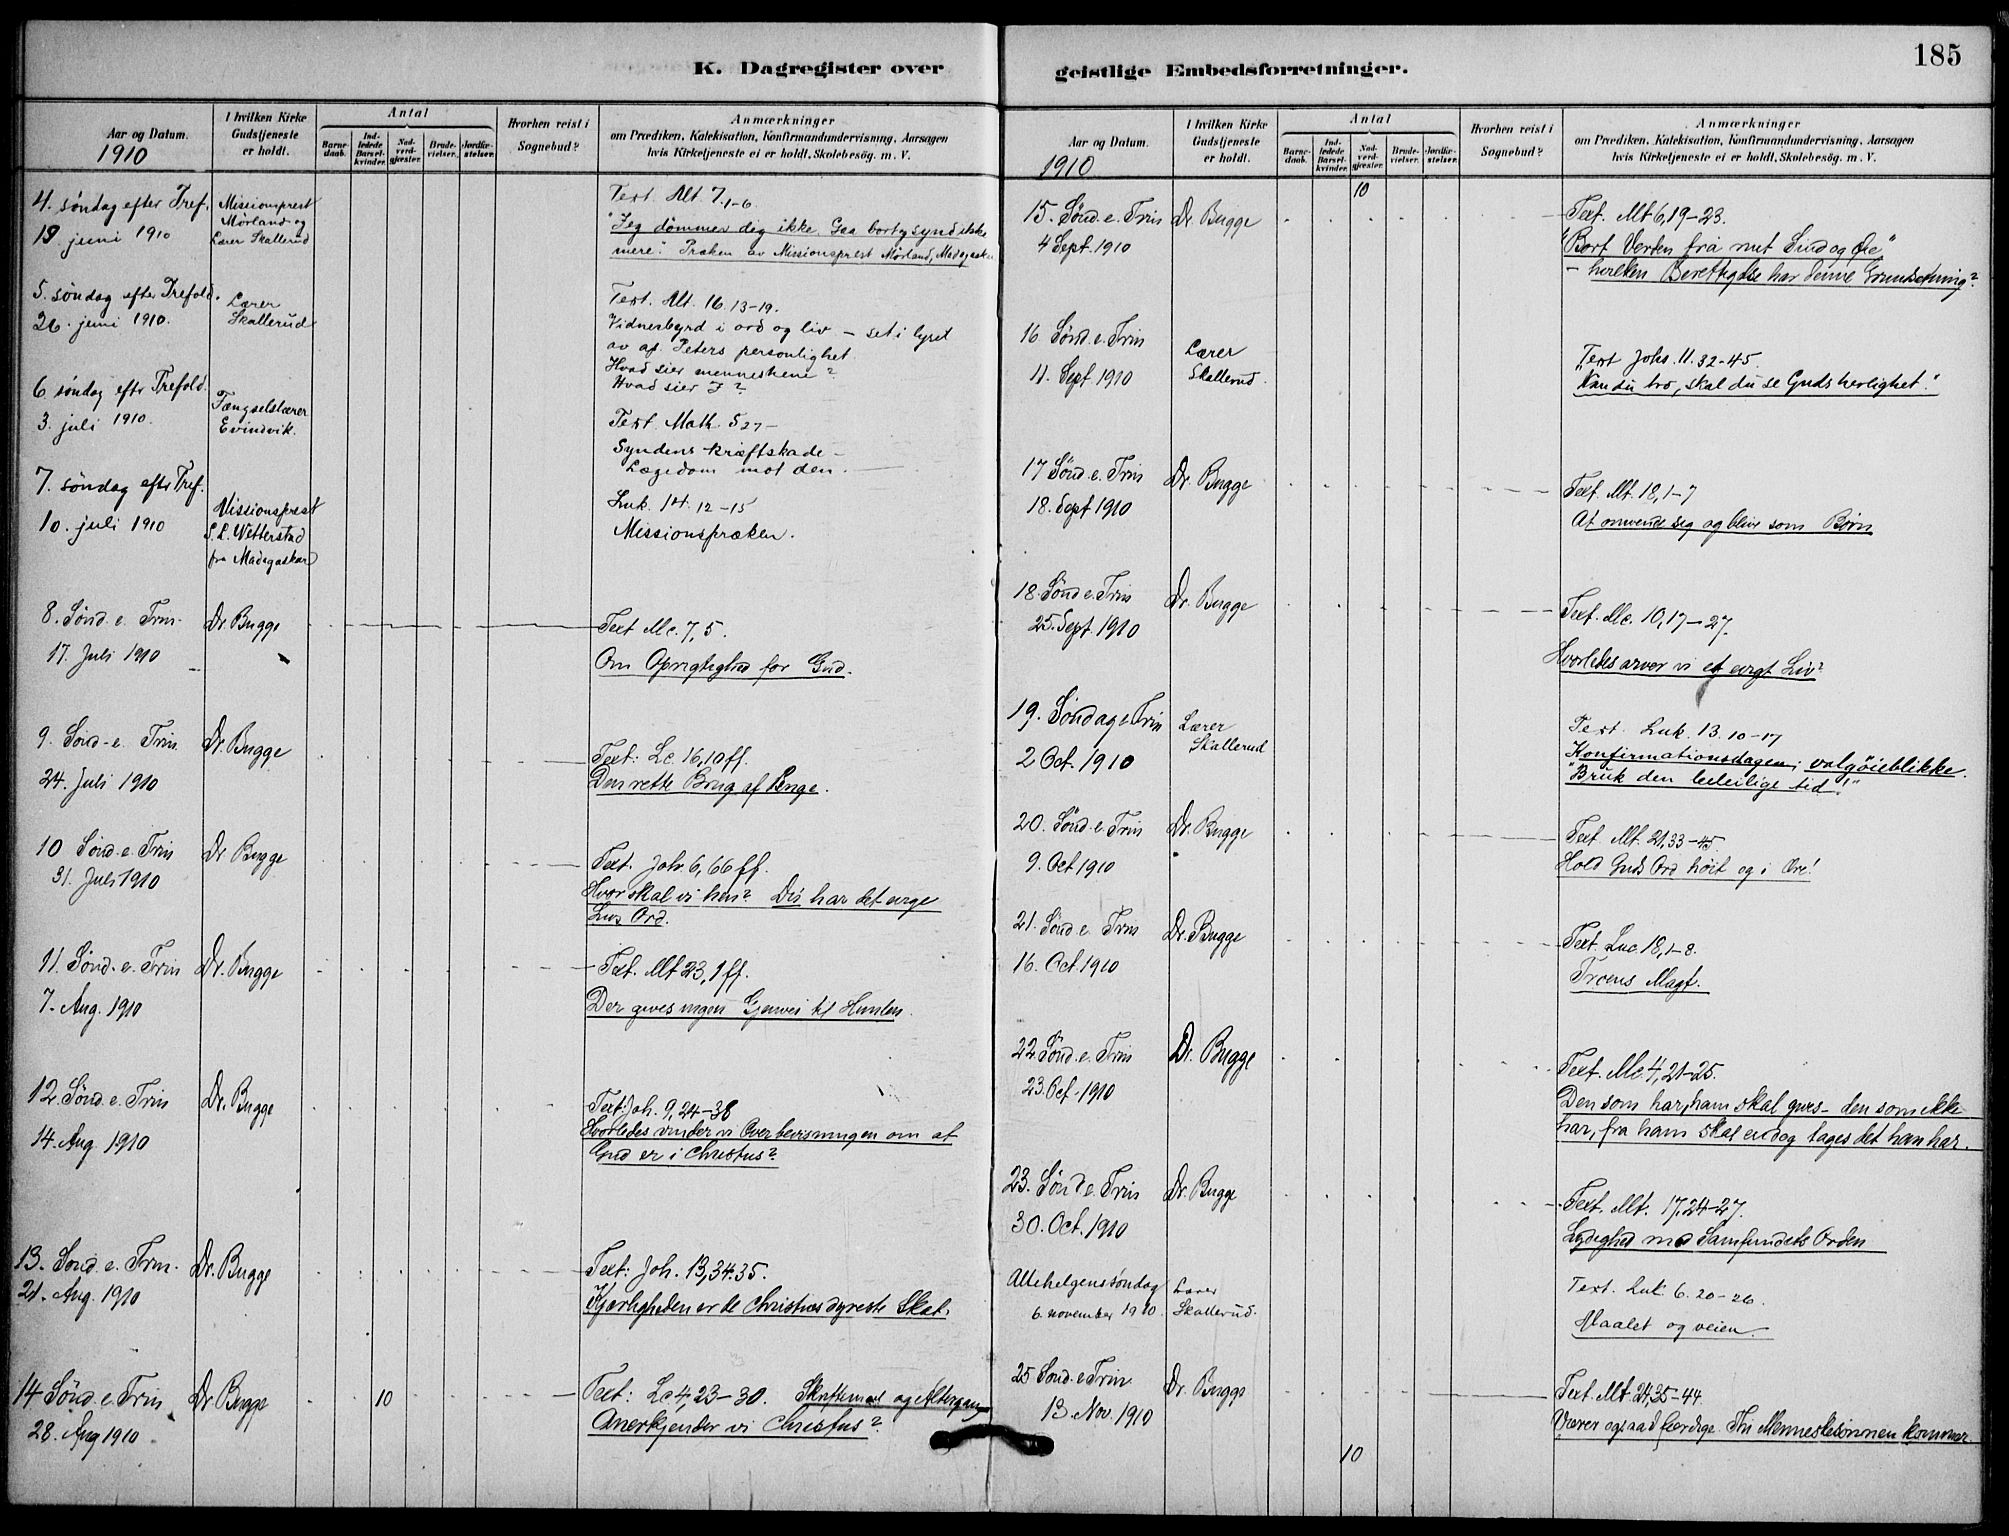 K. Dagregister over
Aar og Datum.
1910
I hvilken Kirke
Gudstjeneste
er holdt.
Antal
Barne-
daab.
Ind-
ledede
Barsel-
kvinder.
Nad-
verd-
gjester.
Brude-
vielser.
Jordfæ-
stelser.
Hvorhen reist i
Sognebud?
Anmærkninger
om Prædiken, Katekisation, Konfirmandundervisning, Aarsagen
hvis Kirketjeneste ei er holdt, Skolebesög. m. V.
4. søndag efter Tref.
19. juni 1910
Missionsprest
Mørland og
Lærer Skallerud
Text Mt 7.1-6.
"Jeg dømmer dig ikke. Gaa bort, synd ikke
mere". Præken av Missionsprest Mørland, Madagaskar
5. søndag efter Trefold.
26. juni 1910.
Lærer
Skallerud
Text. Mt. 16 13-19.
Vidnesbyrd i ord og liv – set i lyset
av ap. Peters personlighet.
Hvad sier menneskene?
Hvad sier I?
6 søndag efter Trefold.
3. juli 1910.
Fængselslærer
Evindvik.
Text. Math. 5 27–
Syndens kræftskade –
Lægedom mot den.
7. søndag efter Tref.
10. juli 1910
Missionsprest
S. L. Wetterstad
fra Madagaskar
Luk. 14. 12-15
Missionspræken.
8. Sønd. e. Trin.
17. Juli 1910
Dr. Bugge
Text Mc. 7, 5.
Om Oprigtighed for Gud.
9. Sønd. e. Trin.
24. Juli 1910
Dr. Bugge
Text: Lc. 16, 10 ff.
Den rette Brug af Penge.
10 Sønd. e. Trin
31. Juli 1910
Dr Bugge
Text. Joh. 6, 66 ff.
Hvor skal vi hen? Du har det evige
Livs Ord.
11. Sønd. e. Trin
7. Aug. 1910
Dr. Bugge
Text. Mt 23, 1 ff.
Der gives ingen Genvei til Himlen.
12. Sønd. e. Trin
14. Aug 1910
Dr. Bugge
Text: Joh. 9, 24-38
Hvorledes vinder vi Overbevisningen om at
Gud er i Christus?
13. Sønd. e. Trin.
21. Aug. 1910
Dr. Bugge
Text: Joh. 13, 34.35.
Kjærligheden er de Christnes dyreste Skat.
14 Sønd. e. Trin
28. Aug 1910
Dr Bugge
10
Text: Lc 4, 23-30. Skriftemaal og Altergang
Anerkjender vi Christus?
geistlige Embedsforretninger.
185
Aar og Datum.
1910
I hvilken Kirke
Gudstjeneste
er holdt.
Antal
Barne-
daab.
Ind-
ledede
Barsel-
kvinder.
Nad-
verd-
gjester.
Brude-
vielser.
Jordfæ-
stelser.
Hvorhen reist i
Sognebud?
Anmærkninger
om Prædiken, Katekisation, Konfirmandundervisning, Aarsagen
hvis Kirketjeneste ei er holdt, Skolebesög. m. V.
10
15. Sønd. e. Trin
4 Sept. 1910
Dr. Bugge
Text. Mt 6, 19-23.
"Bort Verden fra mit Sind og Øie"
– hvilken Berettigelse har denne Grundsetning?
16 Sønd. e. Trin
11. Sept 1910
Lærer
Skallerud.
Text Johs. 11. 32-45.
"Kan du tro, skal du se Guds herlighet."
17 Sønd. e. Trin
18. Sept 1910
Dr. Bugge
Text. Mt. 18, 1-7
At omvende sig og blive som Børn
18. Sønd e. Trin
25. Sept. 1910
Dr. Bugge
Text. Mc. 10, 17-27.
Hvorledes arver vi et evigt Liv?
19. Søndag e Trin
2 Oct. 1910
Lærer
Skallerud
Text. Luk. 13. 10-17
Konfirmationsdagen; valgøieblikke.
"Bruk den beleilige tid!"
20. Sønd. e. Trin
9. Oct 1910
Dr. Bugge
Text. Mt. 21, 33-45
Hold Guds Ord høit og i Ære!
21. Sønd. e. Trin
16. Oct. 1910
Dr. Bugge
Text. Luc. 18, 1-8.
Troens Magt.
22. Sønd. e. Trin
23. Oct. 1910
Dr. Bugge
Text. Mc. 4, 21-25.
Den som har, ham skal gives – den som ikke
har, fra ham skal endog tages det han har.
23. Sønd e. Trin
30. Oct. 1910
Dr. Bugge
Text. Mt. 17, 24-27.
Lydighed mod Samfundets Orden
Allehelgenssøndag
6. november 1910.
Lærer
Skallerud.
Text. Luk. 6. 20-26.
Maalet og veien.
25 Sønd. e Trin
13. Nov. 1910
Dr. Bugge
Text. Mt 24, 35-44
Værer ogsaa I færdige. Thi Menneskesønnen kommer.
10